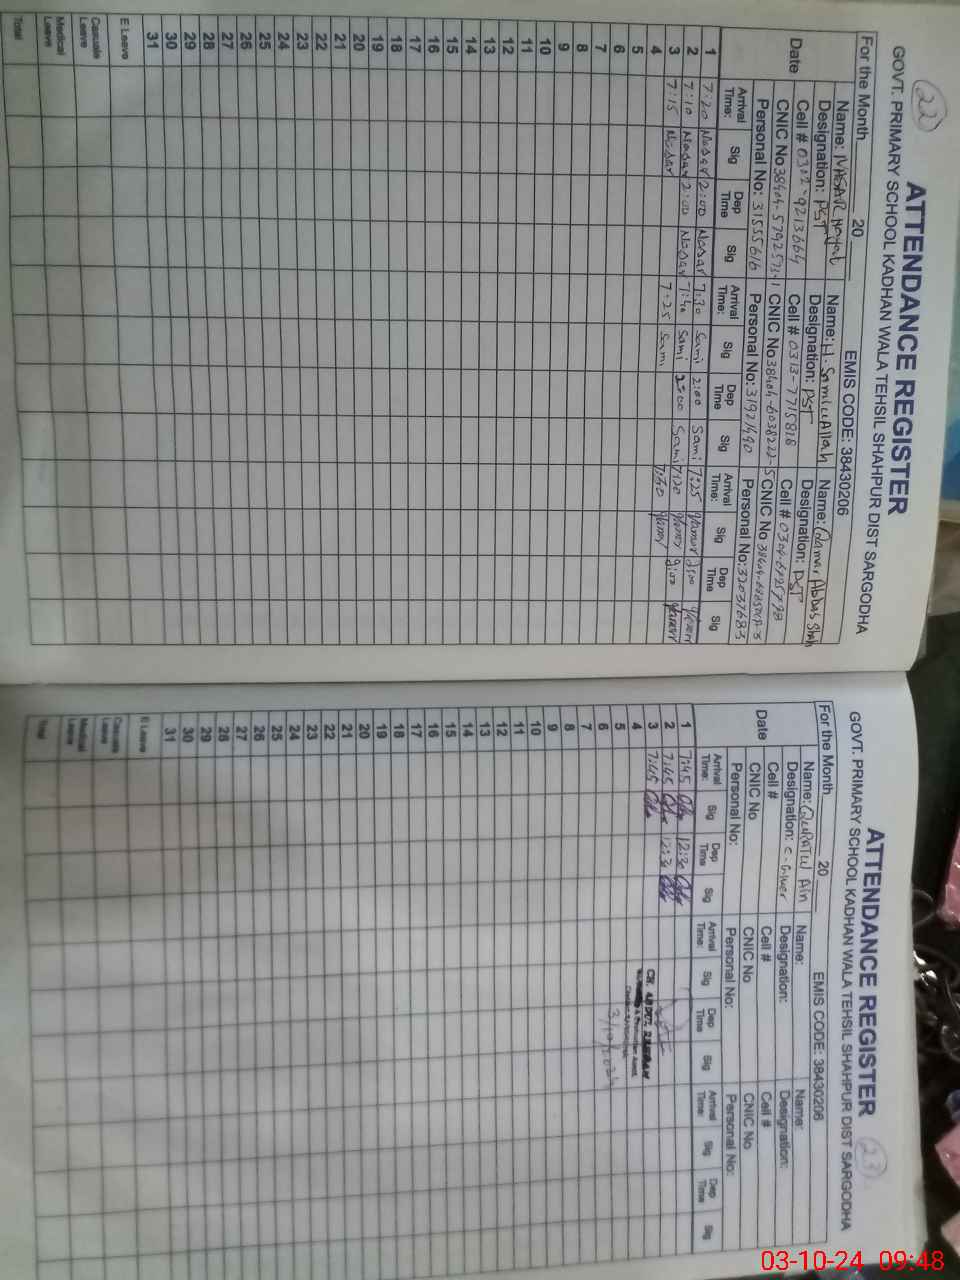 22
ATTENDANCE REGISTER
GOVT. PRIMARY SCHOOL KADHAN WALA TEHSIL SHAHPUR DIST SARGODHA
For the Month 20 EMIS CODE: 38430206
Name: NASAR Hayat Name: H. Sami ullAllah Name: Qamar Abbas Shah
Designation: PST Designation: PST Designation: PST
Cell # 0302-9213664 Cell # 0313-7715818 Cell #
CNIC No 38404-5792573-1 CNIC No 38404-6038222-5 CNIC No
Date Personal No: 31555616 Personal No: 31921490 Personal No: 32037683
Arrival Time: Sig Dep Time Sig Arrival Time: Sig Dep Time Sig Arrival Time: Sig Dep Time Sig
1 7:20 Nasar 2:00 Nasar 7:30 Sami 2:00 Sami 7:25 2:00
2 7:10 Nasar 2:00 Nasar 7:40 Sami 2:00 Sami 7:20 2:00
3 7:15 Nasar 7:25 Sami 7:30
4
5
6
7
8
9
10
11
12
13
14
15
16
17
18
19
20
21
22
23
24
25
26
27
28
29
30
31
E Leave
Casuale Leave
Medical Leave
Total
23
ATTENDANCE REGISTER
GOVT. PRIMARY SCHOOL KADHAN WALA TEHSIL SHAHPUR DIST SARGODHA
For the Month 20 EMIS CODE: 38430206
Name: QURATUL Ain Name: Name:
Designation: C-Giver Designation: Designation:
Cell # Cell # Cell #
CNIC No CNIC No CNIC No
Date Personal No: Personal No: Personal No:
Arrival Time: Sig Dep Time Sig Arrival Time: Sig Dep Time Sig Arrival Time: Sig Dep Time Sig
1 7:45 12:30
2 7:45 12:30
3 7:45
CH. ABDUL
4
5
3/10/2024
6
7
8
9
10
11
12
13
14
15
16
17
18
19
20
21
22
23
24
25
26
27
28
29
30
31
E Leave
Casuale Leave
Medical Leave
Total
03-10-24 09:48